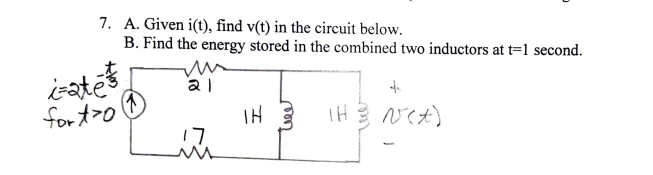 7. A. Given i(t), find v(t) in the circuit below.
B. Find the energy stored in the combined two inductors at t=1 second.
i=2te^-t/3
for t>0
21
1H
1H
+
v(t)
-
17